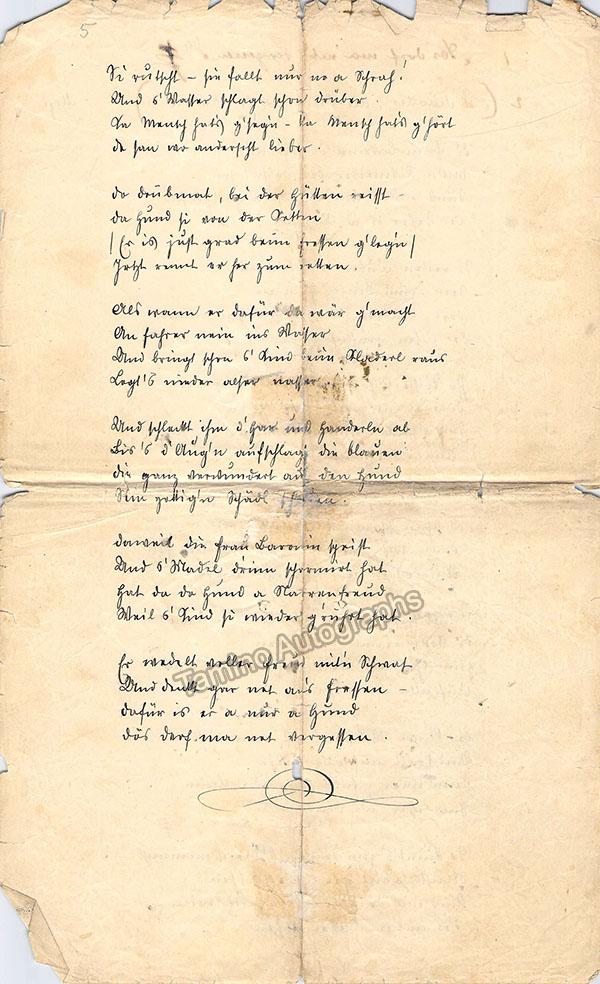 5
Si rutscht – sie fallt nur no a Schrah!
Und s' Wasser schlagt schon drüber.
Ka Mensch hats g'segn – Ka Mensch hats g'hört
de san wo anderscht lieber.
do drübmat, bei der Hütten reisst –
da Hund si von der Kettn
(Er is just grad beim Fressen g'leg'n)
Jetzt rennt er her zum retten.
Als wann er dafür da wär g'macht
An fahrer nein ins Wasser
Und bringt schon s' Kind beim Kladerl raus
Legt's nieder alser nasser
Und schleckt ihm d' Haar und Handerln ab
Bis 's d' Aug'n aufschlagt die blauen
die ganz verwundert auf den Hund
Sein zottig'n Schädl
daweil die Frau Baronin speist
Und s' Madel drinn scharmirt hat
Hat da da Hund a Narrenfreud
Weil s' Kind si wieder g'rührt hat.
Er wedelt voller Freud mit'n Schwaf
Und denkt gar net an's Fressen –
dafür is er a nur a Hund
dös derf ma net vergessen.
Tamino Autographs